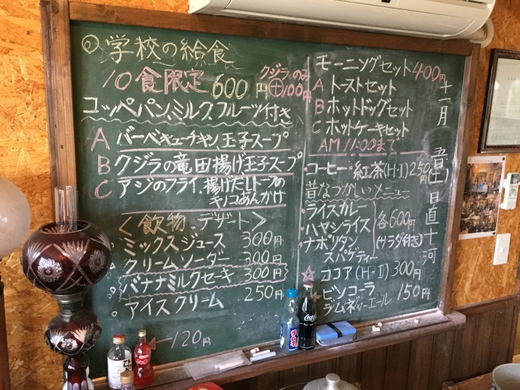 学校の給食
10食限定 600円 クジラのみ ⊕100円
コッペパン、ミルク、フルーツ付き
A バーベキューチキン 玉子スープ
B クジラの竜田揚げ 玉子スープ
C アジのフライ、揚げだしトーフの
キノコあんかけ
＜飲物、デザート＞
ミックスジュース 300円
クリームソーダー 300円
バナナミルクセーキ 300円
アイスクリーム 250円
←120円
モーニングセット 400円
A トーストセット
B ホットドッグセット
C ホットケーキセット
AM 11:00まで
コーヒー・紅茶(H・I) 250円
昔なつかしいメニュー
ライスカレー
ハヤシライス
ナポリタン
スパゲティー
各600円
(サラダ付き)
ココア(H・I) 300円
ビンコーラ
ラムネ 150円
十一月
日直